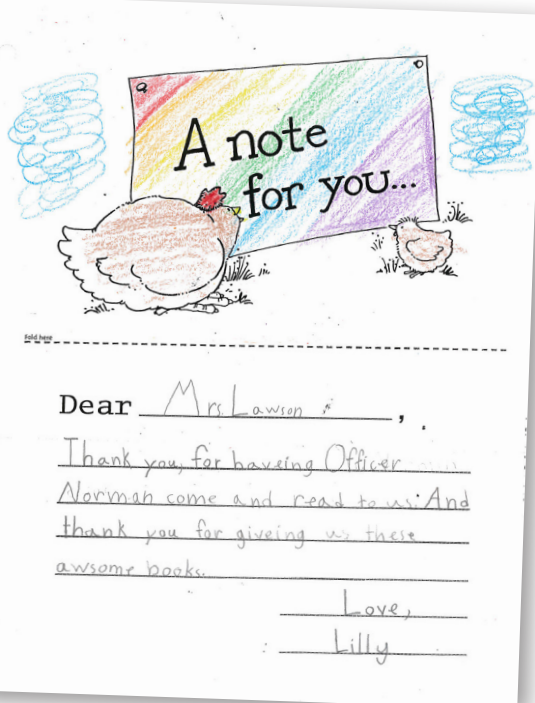 A note
for you...
Fold here
Dear Mrs. Lawson,
Thank you, for haveing Officer
Norman come and read to us. And
thank you for giveing us these
awsome books.
Love,
Lilly